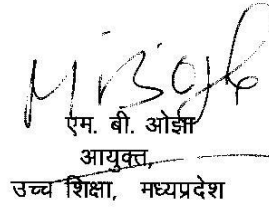 एम. बी. ओझा
आयुक्त,
उच्च शिक्षा, मध्यप्रदेश